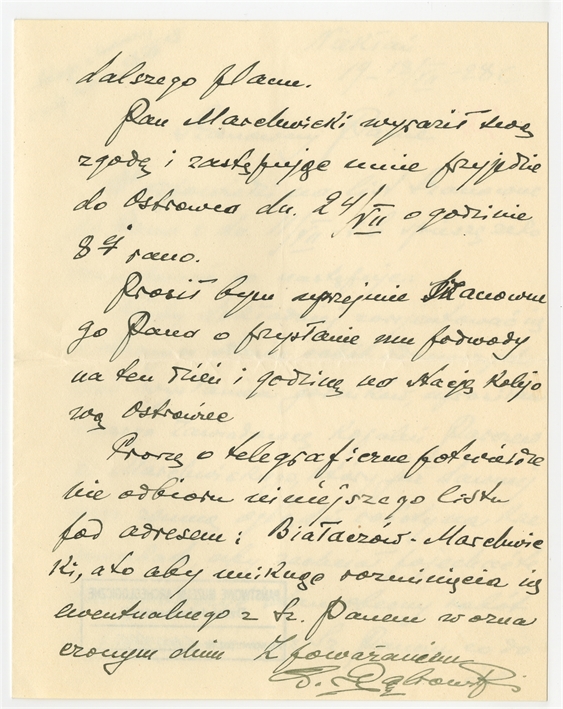 dalszego planu.
Pan Marchwicki wyraził swą
zgodę i zastępując mnie przyjedzie
do Ostrowca dn. 24/VII o godzinie
8ej rano.
Prosił bym uprzejmie Szanowne
go Pana o przysłanie mu podwody
na ten dzień i godzinę na stację kolejo
wą Ostrowiec
Proszę o telegraficzne potwierdze
nie odbioru niniejszego listu
pod adresem: Białaczów-Marchwic
ki, a to aby uniknąć rozminięcia się
ewentualnego z Sz. Panem w ozna
czonym dniu Z poważaniem